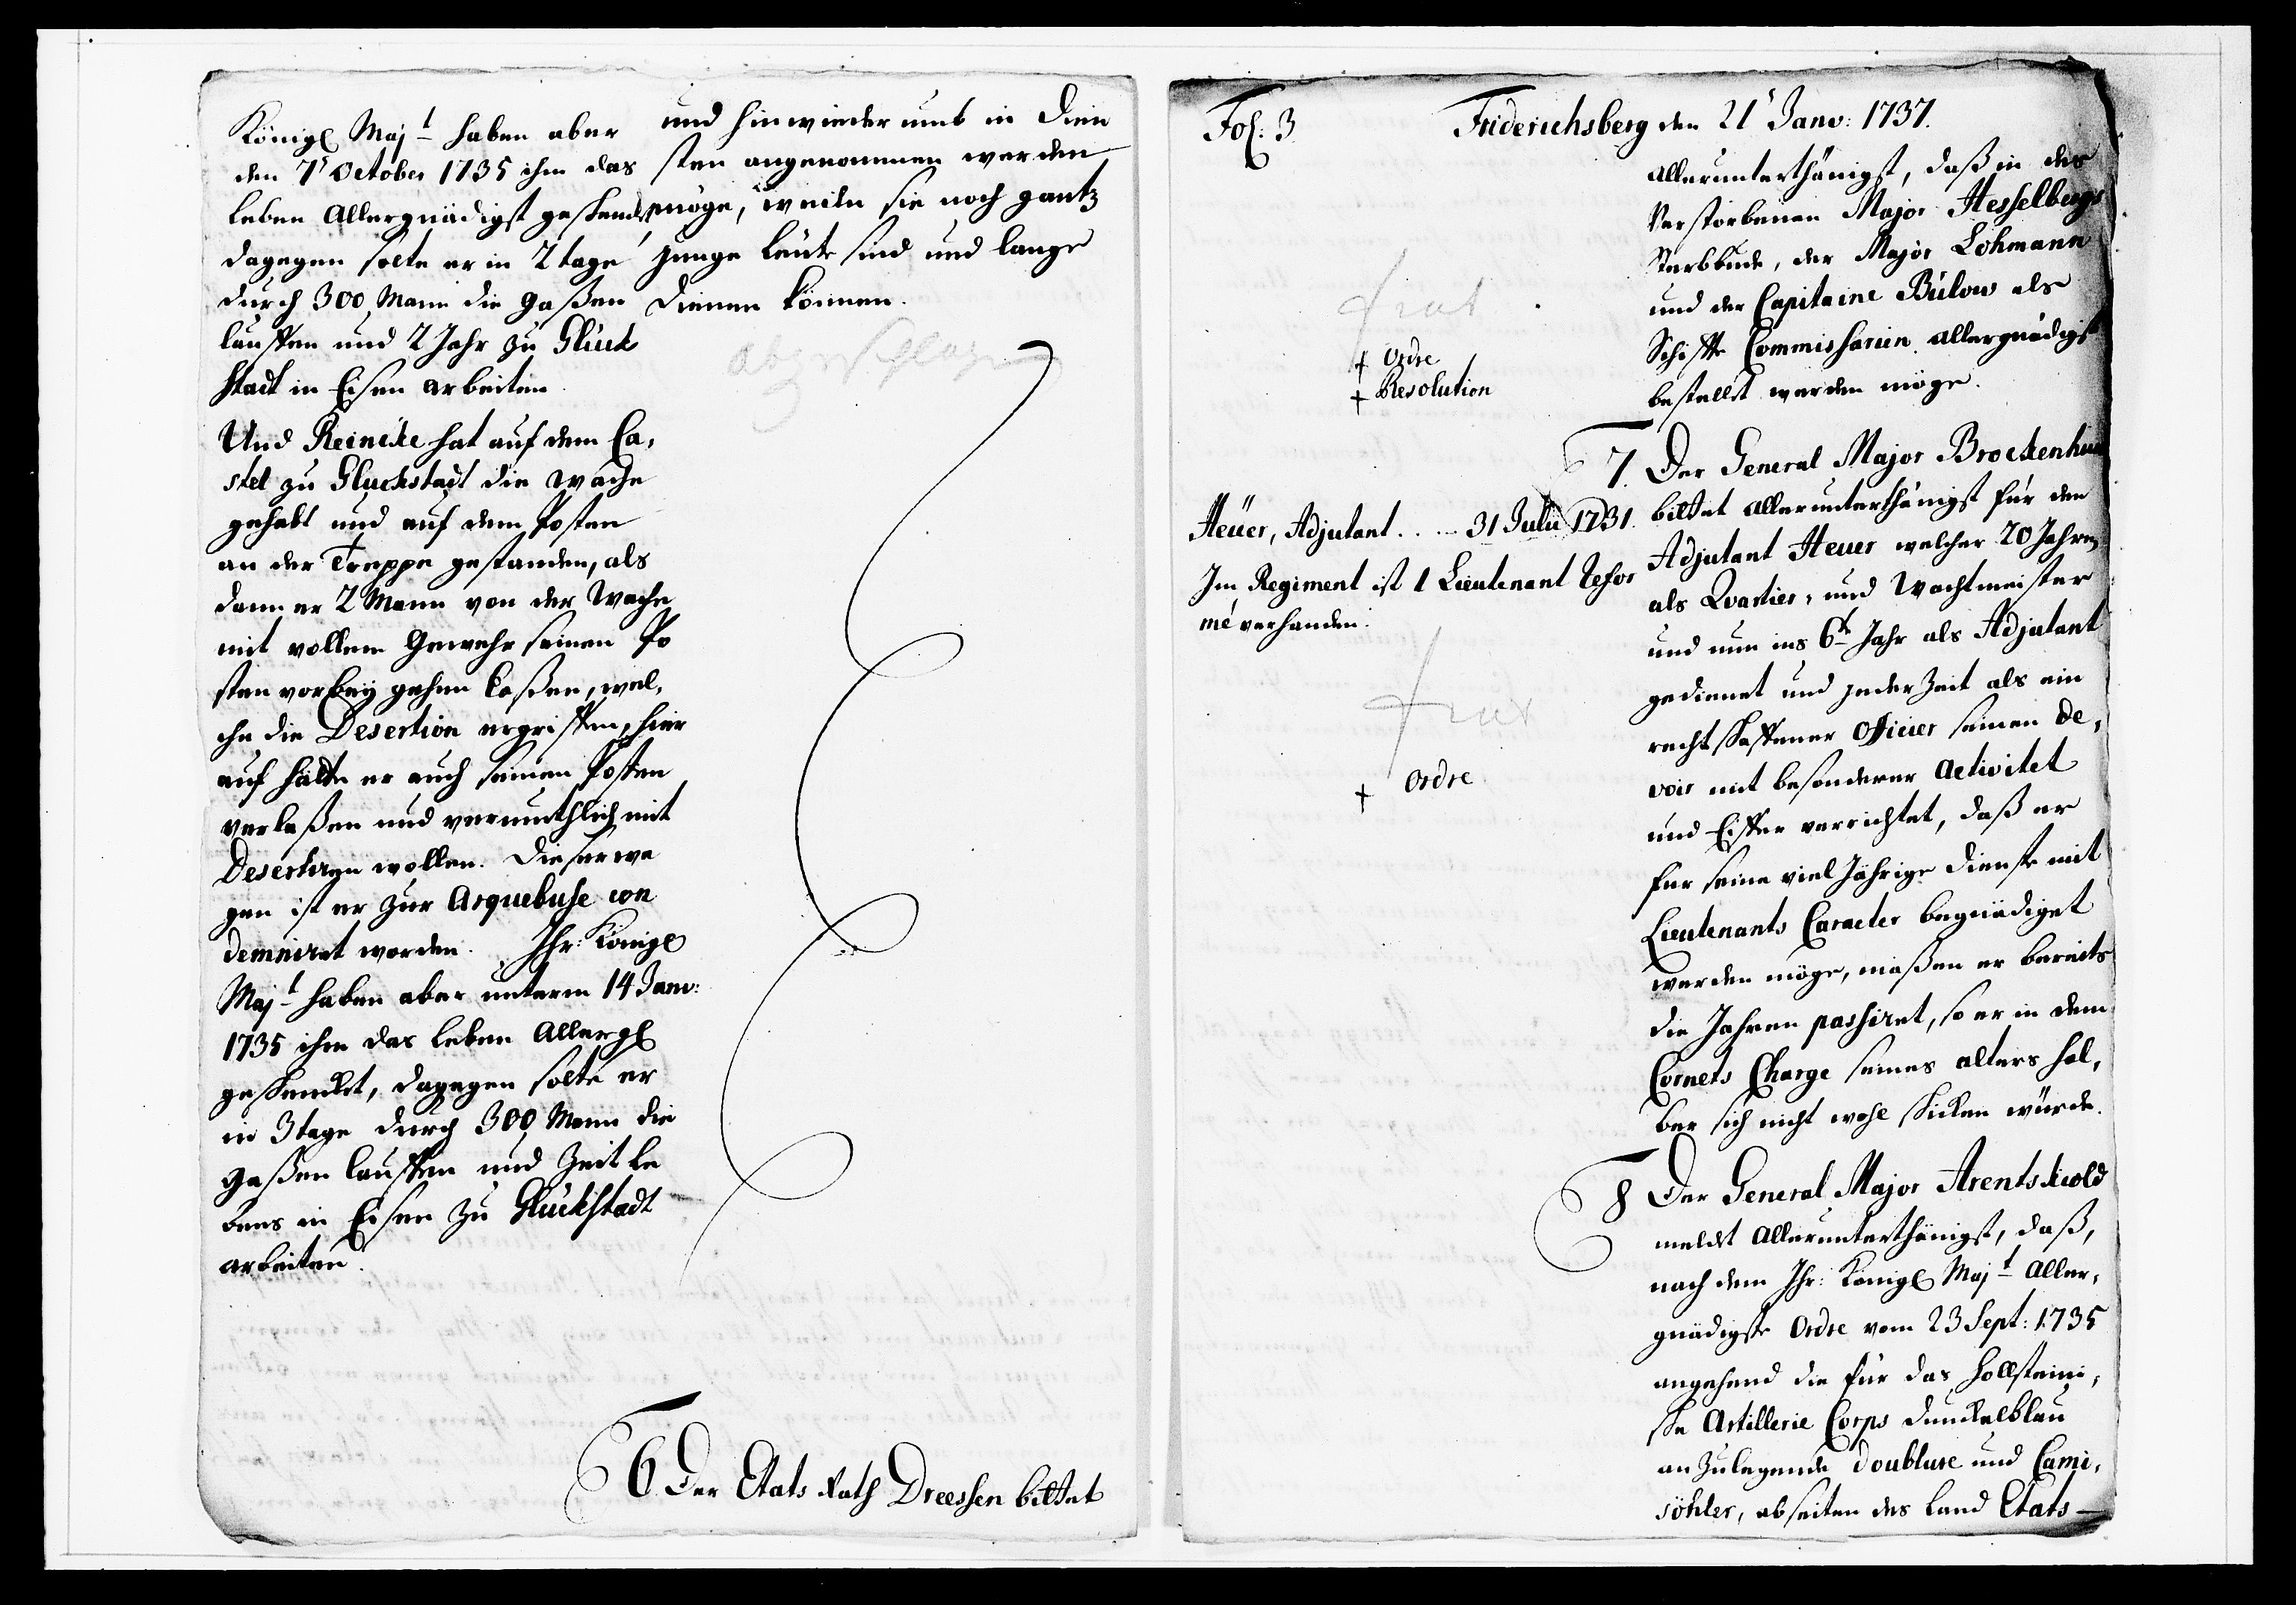 Königl Majt haben aber
den 7t October 1735 ihm das
leben Allergnädigst geschenckt
dagegen solte er in 2 tage
durch 300 Mann die gaßen
lauffen und 2 Jahr zu Glück
stadt in Eisen arbeiten.
Und Reincke hat auf dem Ca,
stel zu Gluckstadt die wache
gehabt und auf dem Posten
an der Treppe gestanden, als
dann er 2 Mann von der Wache
mit vollem Gewehr seinen Po
sten vorbey gehen laßen, wel,
che die Desertion ergriffen, hier
auf hätte er auch seinen Posten
verlaßen und vermuthlich mit
Desertiren wollen. Dieserwe
gen ist er zur Arquebuse con
demniret worden. Ihr: Königl
Majt haben aber unterm 14 Janv:
1735 ihm das leben Allergl
geschencket, dagegen solte er
in 3 tage durch 300 Mann die
gaßen lauffen und Zeit le
bens in Eisen zu Glückstadt
arbeiten.
und hinwieder umb in Dien
sten angenommen werden
möge, weiln sie noch gantz
junge leute sind und lange
dienen können.
abgeschlagen
6. Der Etats Rath Dreessen bittet
Fol: 3.
Friderichsberg den 21t Janv: 1737.
allerunterthänigst, daß in des
verstorbenen Major Hesselbergs
Sterbbude, der Major Lohmann
und der Capitaine Bülow als
Schiffte Commissarien allergnädigst
bestellet werden möge.
fiat
† Ordre
† Resolution
7. Der General Major Brockenhuus
bittet allerunterthänigst für den
Adjutant Heuer welcher 20 Jahren
als Qvartier, und Wachtmeister
und nun ins 6te Jahr als Adjutant
gedienet und jeder Zeit als ein
rechtschaffener Officier seinen De,
voir mit besonderer Activitet
und Eiffer verrichtet, daß er
fur seine viel Jährige Dienste mit
Lieutenants Caracter begnädiget
werden möge, maßen er bereits
die Jahren passiret, so er in dem
Cornets Charge seines alters hal,
ber sich nicht wohl schicken würde.
Heüer, Adjutant .... 31 Julii 1731.
Im Regiment ist 1 Lieutenant Refor
mé verhanden.
fiat
† Ordre
8 Der General Major Arentskiold
meldet Allerunterthänigst, daß,
nach dem Ihr: Königl Majt Aller,
gnädigste Ordre vom 23 Sept: 1735
angehend die für das Hollsteini,
sche Artillerie Corps dunckelblau
anzulegende doublure und Cami,
söhler, abseiten des Land Etats